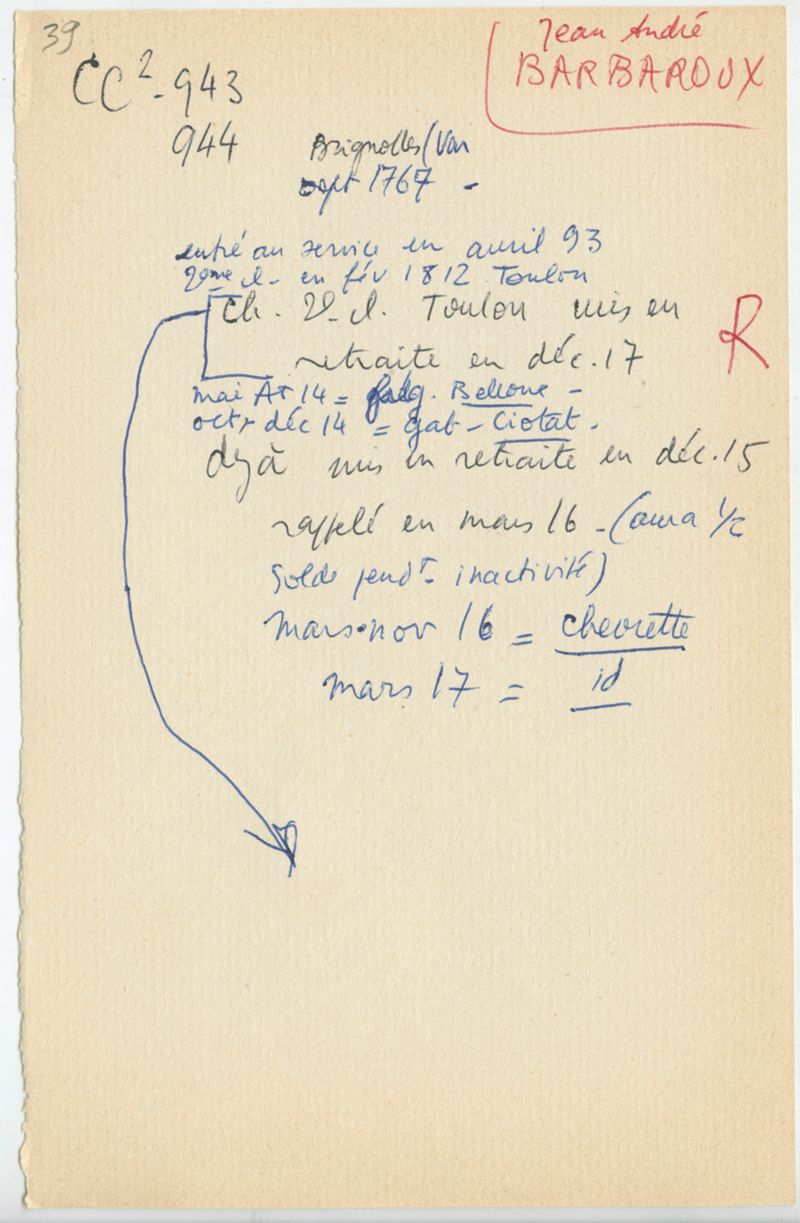 39
Jean André
BARBAROUX
CC2-943
944
Brignolles (Var
sept 1767 -
entré au service en avril 93
2ème cl. en fév 1812 Toulon
Ch. 2e cl. Toulon mis en
R
retraite en déc. 17
mai At 14 = Bellone -
oct, déc 14 = gab - Ciotat -
déjà mis en retraite en déc. 15
rappelé en mars 16 - (aura 1/2
solde pendt inactivité)
mars-nov 16 = chevrette
mars 17 = id